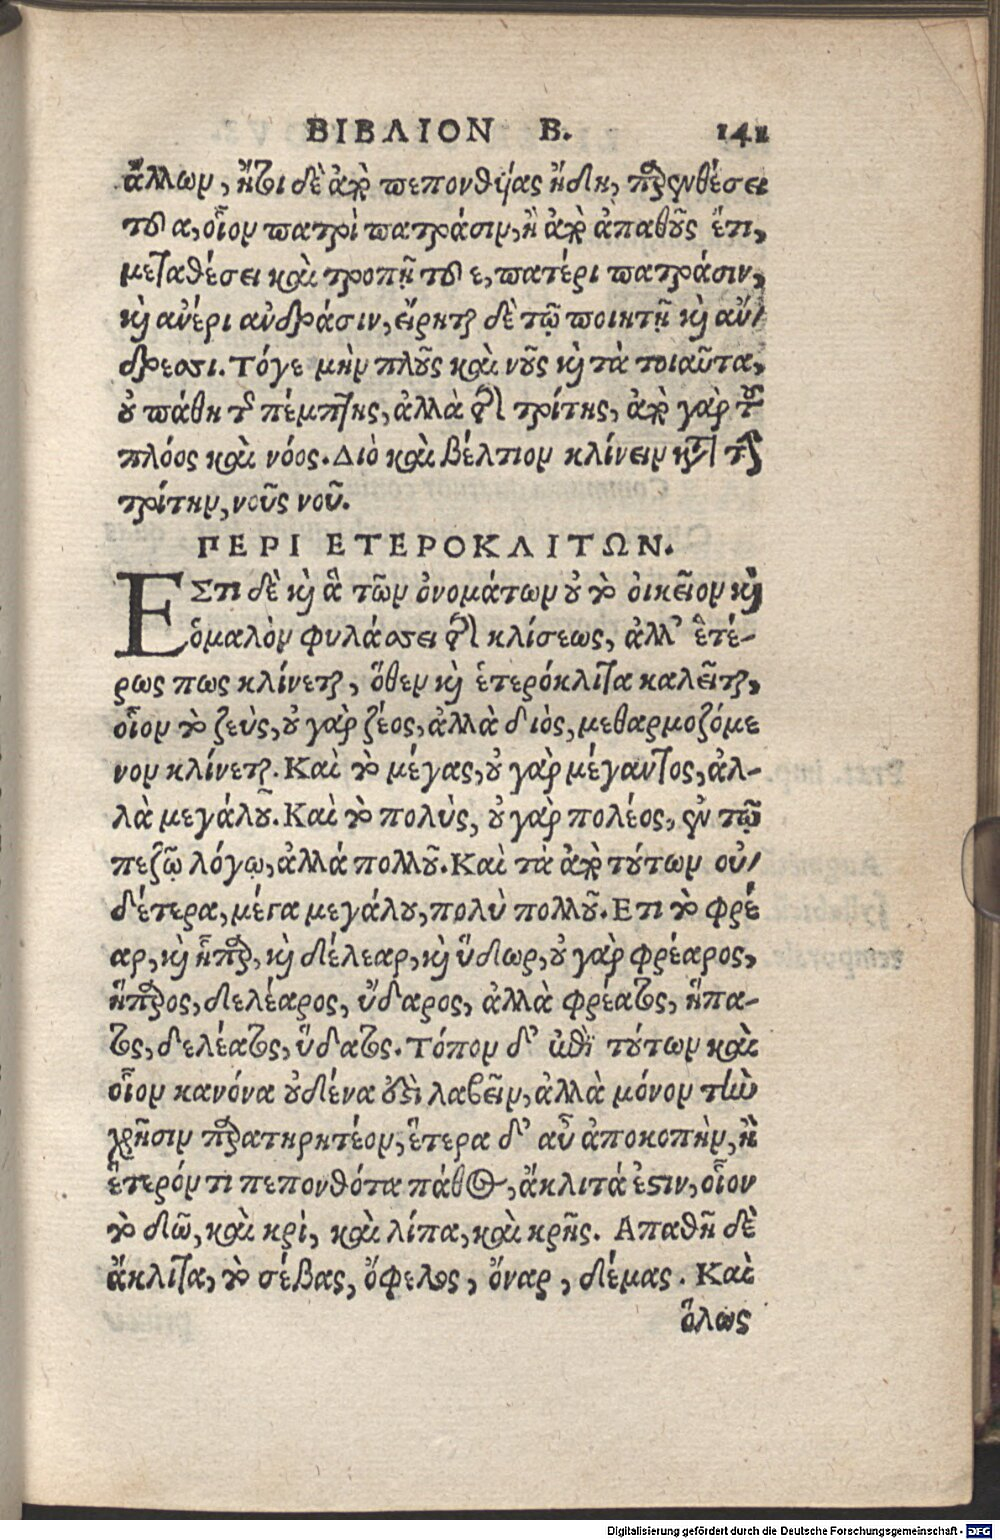 ΒΙΒΛΙΟΝ Β. 141
ἄλλων, ἤτοι δὲ ἀπὸ πεπονθυίας ἤδη, παρενθέσει
τοῦ α, οἷον πατρὶ πατράσιν, ἢ ἀπὸ ἀπαθοῦς ἔτι,
μεταθέσει καὶ τροπῇ τοῦ ε, πατέρι πατράσιν,
καὶ ἀνέρι ἀνδράσιν, εἴρηται δὲ τῷ ποιητῇ καὶ ἄν/
δρεσσι. Τόγε μὴν πλοῦς καὶ νοῦς καὶ τὰ τοιαῦτα,
οὐ πάθη τῆς πέμπτης, ἀλλὰ τῆς τρίτης, ἀπὸ γὰρ τοῦ
πλόος καὶ νόος. Διὸ καὶ βέλτιον κλίνειν κατὰ τὴν
τρίτην, νοῦς νοῦ.
ΠΕΡΙ ΕΤΕΡΟΚΛΙΤΩΝ.
ΕΣτι δὲ καὶ ἃ τῶν ὀνομάτων οὐ τὸ οἰκεῖον καὶ
ὁμαλὸν φυλάσσει τῆς κλίσεως, ἀλλ' ἑτέ-
ρως πως κλίνεται, ὅθεν καὶ ἑτερόκλιτα καλεῖται,
οἷον τὸ ζεὺς, οὐ γὰρ ζέος, ἀλλὰ διὸς, μεθαρμοζόμε
νον κλίνεται. Καὶ τὸ μέγας, οὐ γὰρ μέγαντος, ἀλ-
λὰ μεγάλου. Καὶ τὸ πολὺς, οὐ γὰρ πολέος, ἐν τῷ
πεζῷ λόγῳ, ἀλλά πολλοῦ. Καὶ τὰ ἀπὸ τούτων οὐ/
δέτερα, μέγα μεγάλου, πολὺ πολλοῦ. Ετι τὸ φρέ
αρ, καὶ ἧπαρ, καὶ δέλεαρ, καὶ ὕδωρ, οὐ γὰρ φρέαρος,
ἥπαρος, δελέαρος, ὕδαρος, ἀλλὰ φρέατος, ἥπα-
τος, δελέατος, ὕδατος. Τόπον δ' ἐπὶ τούτων καὶ
οἷον κανόνα οὐδένα ἔστι λαβεῖν, ἀλλὰ μόνον τὴν
χρῆσιν παρατηρητέον, ἕτερα δ' αὖ ἀποκοπὴν, ἢ
ἕτερόν τι πεπονθότα πάθος, ἄκλιτά ἐστιν, οἷον
τὸ δῶ, καὶ κρὶ, καὶ λίπα, καὶ κρῆς. Απαθῆ δὲ
ἄκλιτα, τὸ σέβας, ὄφελος, ὄναρ, δέμας. Καὶ
ὅλως
Digitalisierung gefördert durch die Deutsche Forschungsgemeinschaft - DFG